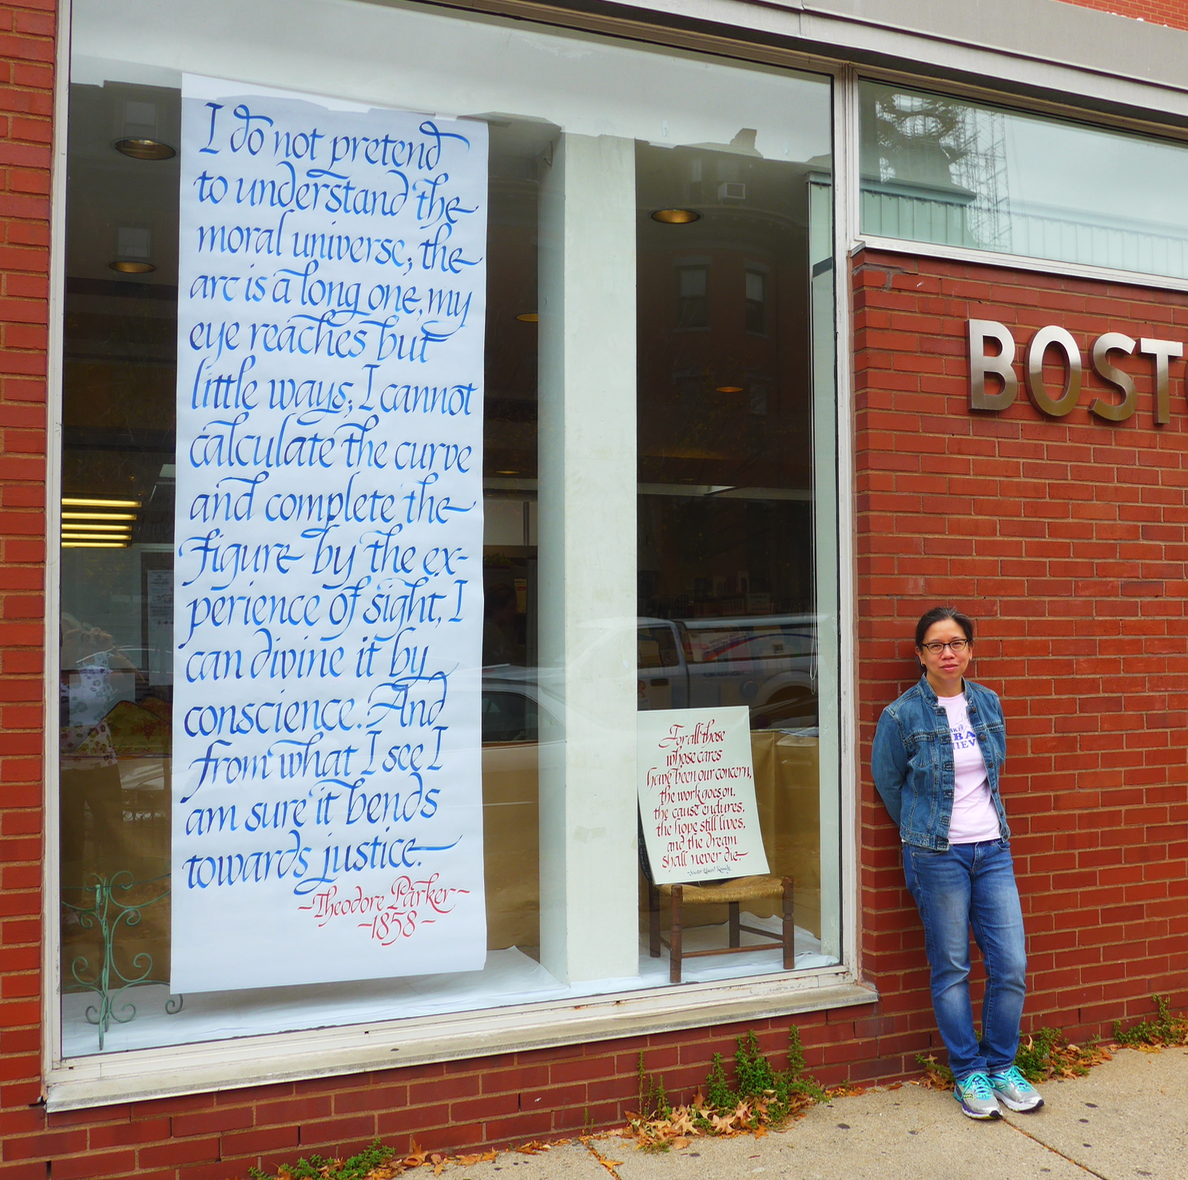 I do not pretend
to understand the
moral universe; the
arc is a long one, my
eye reaches but
little ways; I cannot
calculate the curve
and complete the
figure by the ex-
perience of sight, I
can divine it by
conscience. And
from what I see I
am sure it bends
towards justice.
~Theodore Parker~
~1858~
For all those
whose cares
have been our concern,
the work goes on,
the cause endures,
the hope still lives,
and the dream
shall never die~
BOST